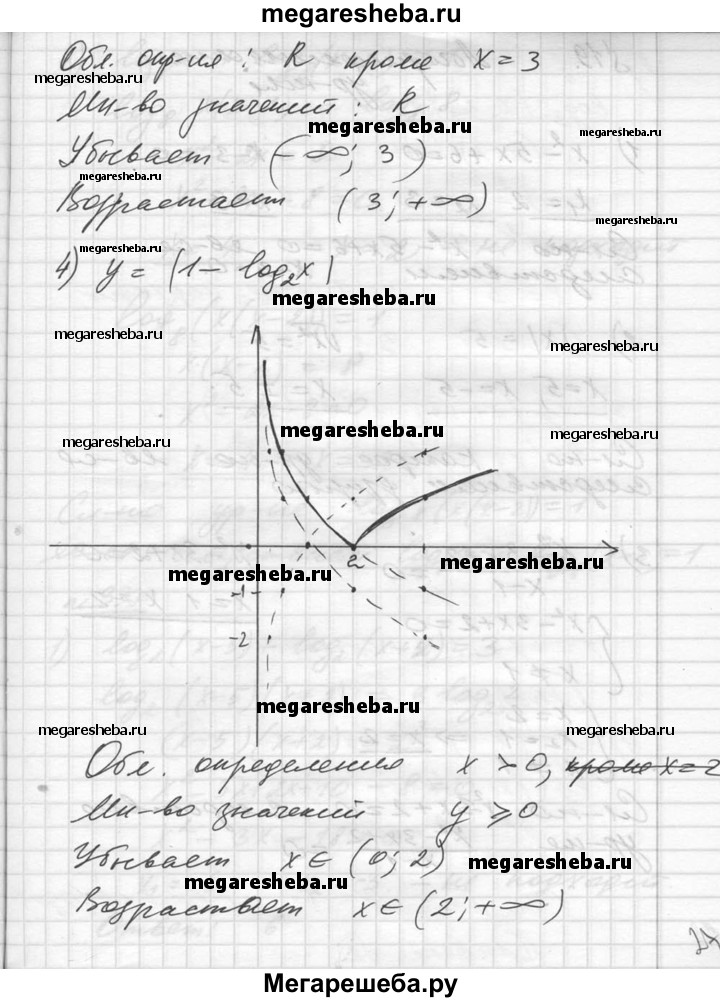 megaresheba.ru
Обл. опр-ия : R кроме x = 3
megaresheba.ru
Мн-во значений : R
megaresheba.ru
Убывает (-∞; 3)
megaresheba.ru
Возрастает (3; +∞)
megaresheba.ru
megaresheba.ru
4) y = |1 - log₂x|
megaresheba.ru
megaresheba.ru
megaresheba.ru
megaresheba.ru
megaresheba.ru
megaresheba.ru
2
megaresheba.ru
megaresheba.ru
-1
-2
megaresheba.ru
megaresheba.ru
megaresheba.ru
Обл. определения x > 0, кроме x = 2
Мн-во значений y ⩾ 0
Убывает x ∈ (0; 2)
megaresheba.ru
megaresheba.ru
Возрастает x ∈ (2; +∞)
Мегарешеба.ру